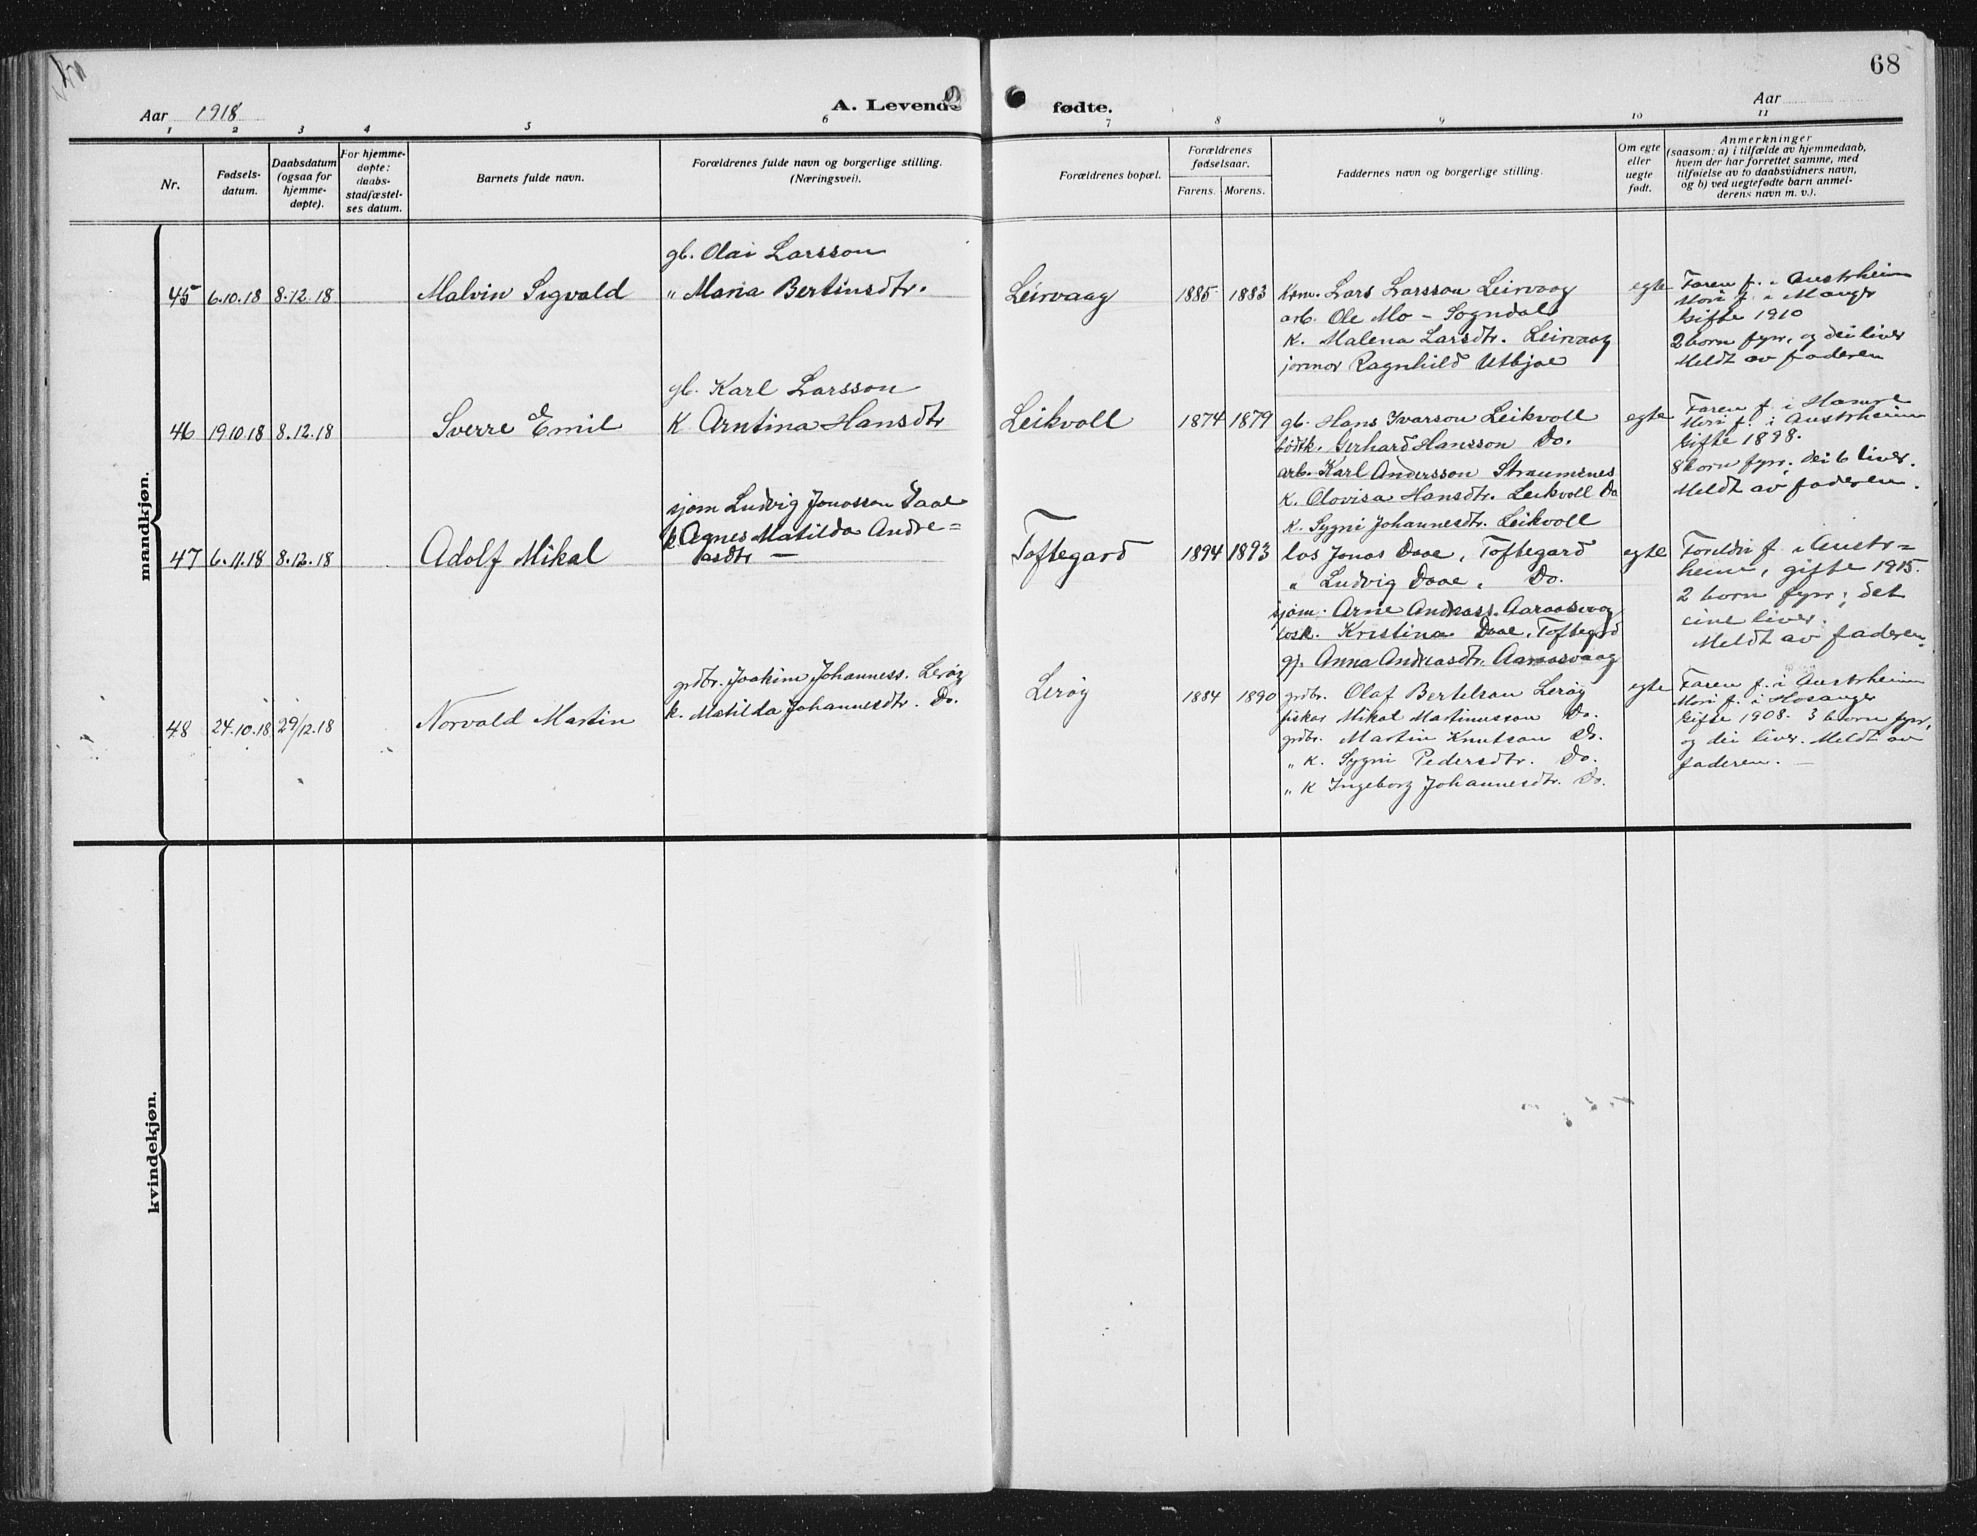 68
Aar 1918
A. Levende fødte.
Aar
1 2 3 4 5 6 7 8 9 10 11
Nr.
Fødsels-
datum.
Daabsdatum
(ogsaa for
hjemme-
døpte).
For hjemme-
døpte:
daabs-
stadfæstel-
ses datum.
Barnets fulde navn.
Forældrenes fulde navn og borgerlige stilling.
(Næringsvei).
Forældrenes bopæl.
Forældrenes
fødselsaar.
Farens. Morens.
Faddernes navn og borgerlige stilling.
Om egte
eller
uegte
født.
Anmerkninger
(saasom: a) i tilfælde av hjemmedaab,
hvem der har forrettet samme, med
tilføielse av to daabsvidners navn,
og b) ved uegtefødte barn anmel-
derens navn m. v.).
mandkjøn.
45 6.10.18 8.12.18
Malvin Sigvald
gb. Olai Larsson
" Maria Bertinsdtr.
Leirvaag
1885 1883
Krm. Lars Larsson Leirvaag
arb. Ole Mo - Sogndal
K. Malena Larsdtr. Leirvaag
jormor Ragnhild Utbjoe
egte
Faren f. i Austrheim
Mori f. i Manger
Gifte 1910
2 born fyrr, og dei liver
Meldt av faderen
46 19.10.18 8.12.18
Sverre Emil
gb. Karl Larsson
K. Arntina Hansdtr
Leikvoll
1874 1879
gb. Hans Ivarson Leikvoll
bødk. Gerhard Hansson Do.
arb. Karl Andersson Straumsnes
K. Olovisa Hansdtr. Leikvoll Do
K. Sygni Johannesdtr. Leikvoll
egte
Faren f. i Hamre
Mori f. i Austrheim
Gifte 1898.
8 born fyrr; dei 6 liver.
Meldt av faderen.
47 6.11.18 8.12.18
Adolf Mikal
sjøm Ludvig Jonasson Daae
k. Agnes Matilda Andre=
asdtr —
Toftegard
1894 1893
los Jonas Daae, Toftegard
" Ludvig Daae, Do.
sjøm. Arne Andreass. Aaraasvaag
losk. Kristina Daae, Toftegard
gj. Anna Andreasdtr. Aaraasvaag
egte
Foreldri f. i Austr=
heim, gifte 1915.
2 born fyrr; det
eine liver.
Meldt av faderen.
48 24.10.18 29/12.18
Norvald Martin
grdbr. Joakim Johanness. Lerøy
k. Matilda Johannesdtr. Do.
Lerøy
1884 1890
grdbr. Olaf Bertelsen Lerøy
fiskar Mikal Martinusson Do.
grdbr. Martin Knutson Do.
" K. Sygni Pedersdtr. Do.
" K Ingeborg Johannesdtr. Do.
egte
Faren f. i Austrheim
Mori f. i Hosanger
Gifte 1908. 3 born fyrr,
og dei liver. Meldt av
faderen. —
kvindekjøn.